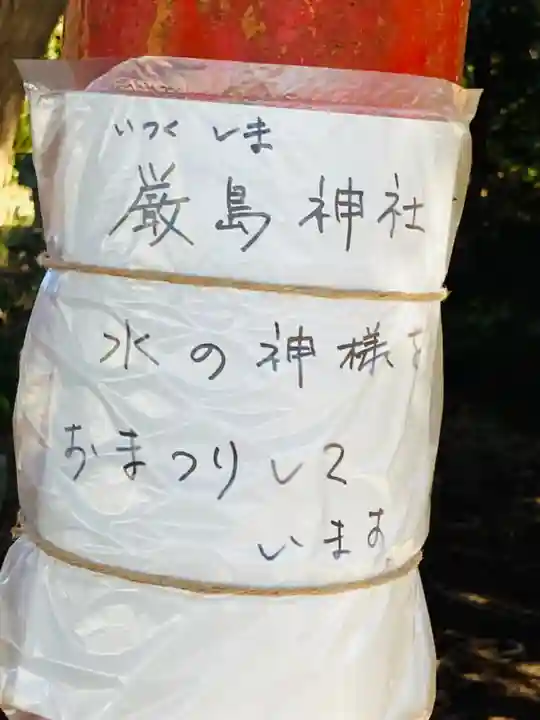 いつくしま
厳島神社
水の神様を
おまつりして
います。